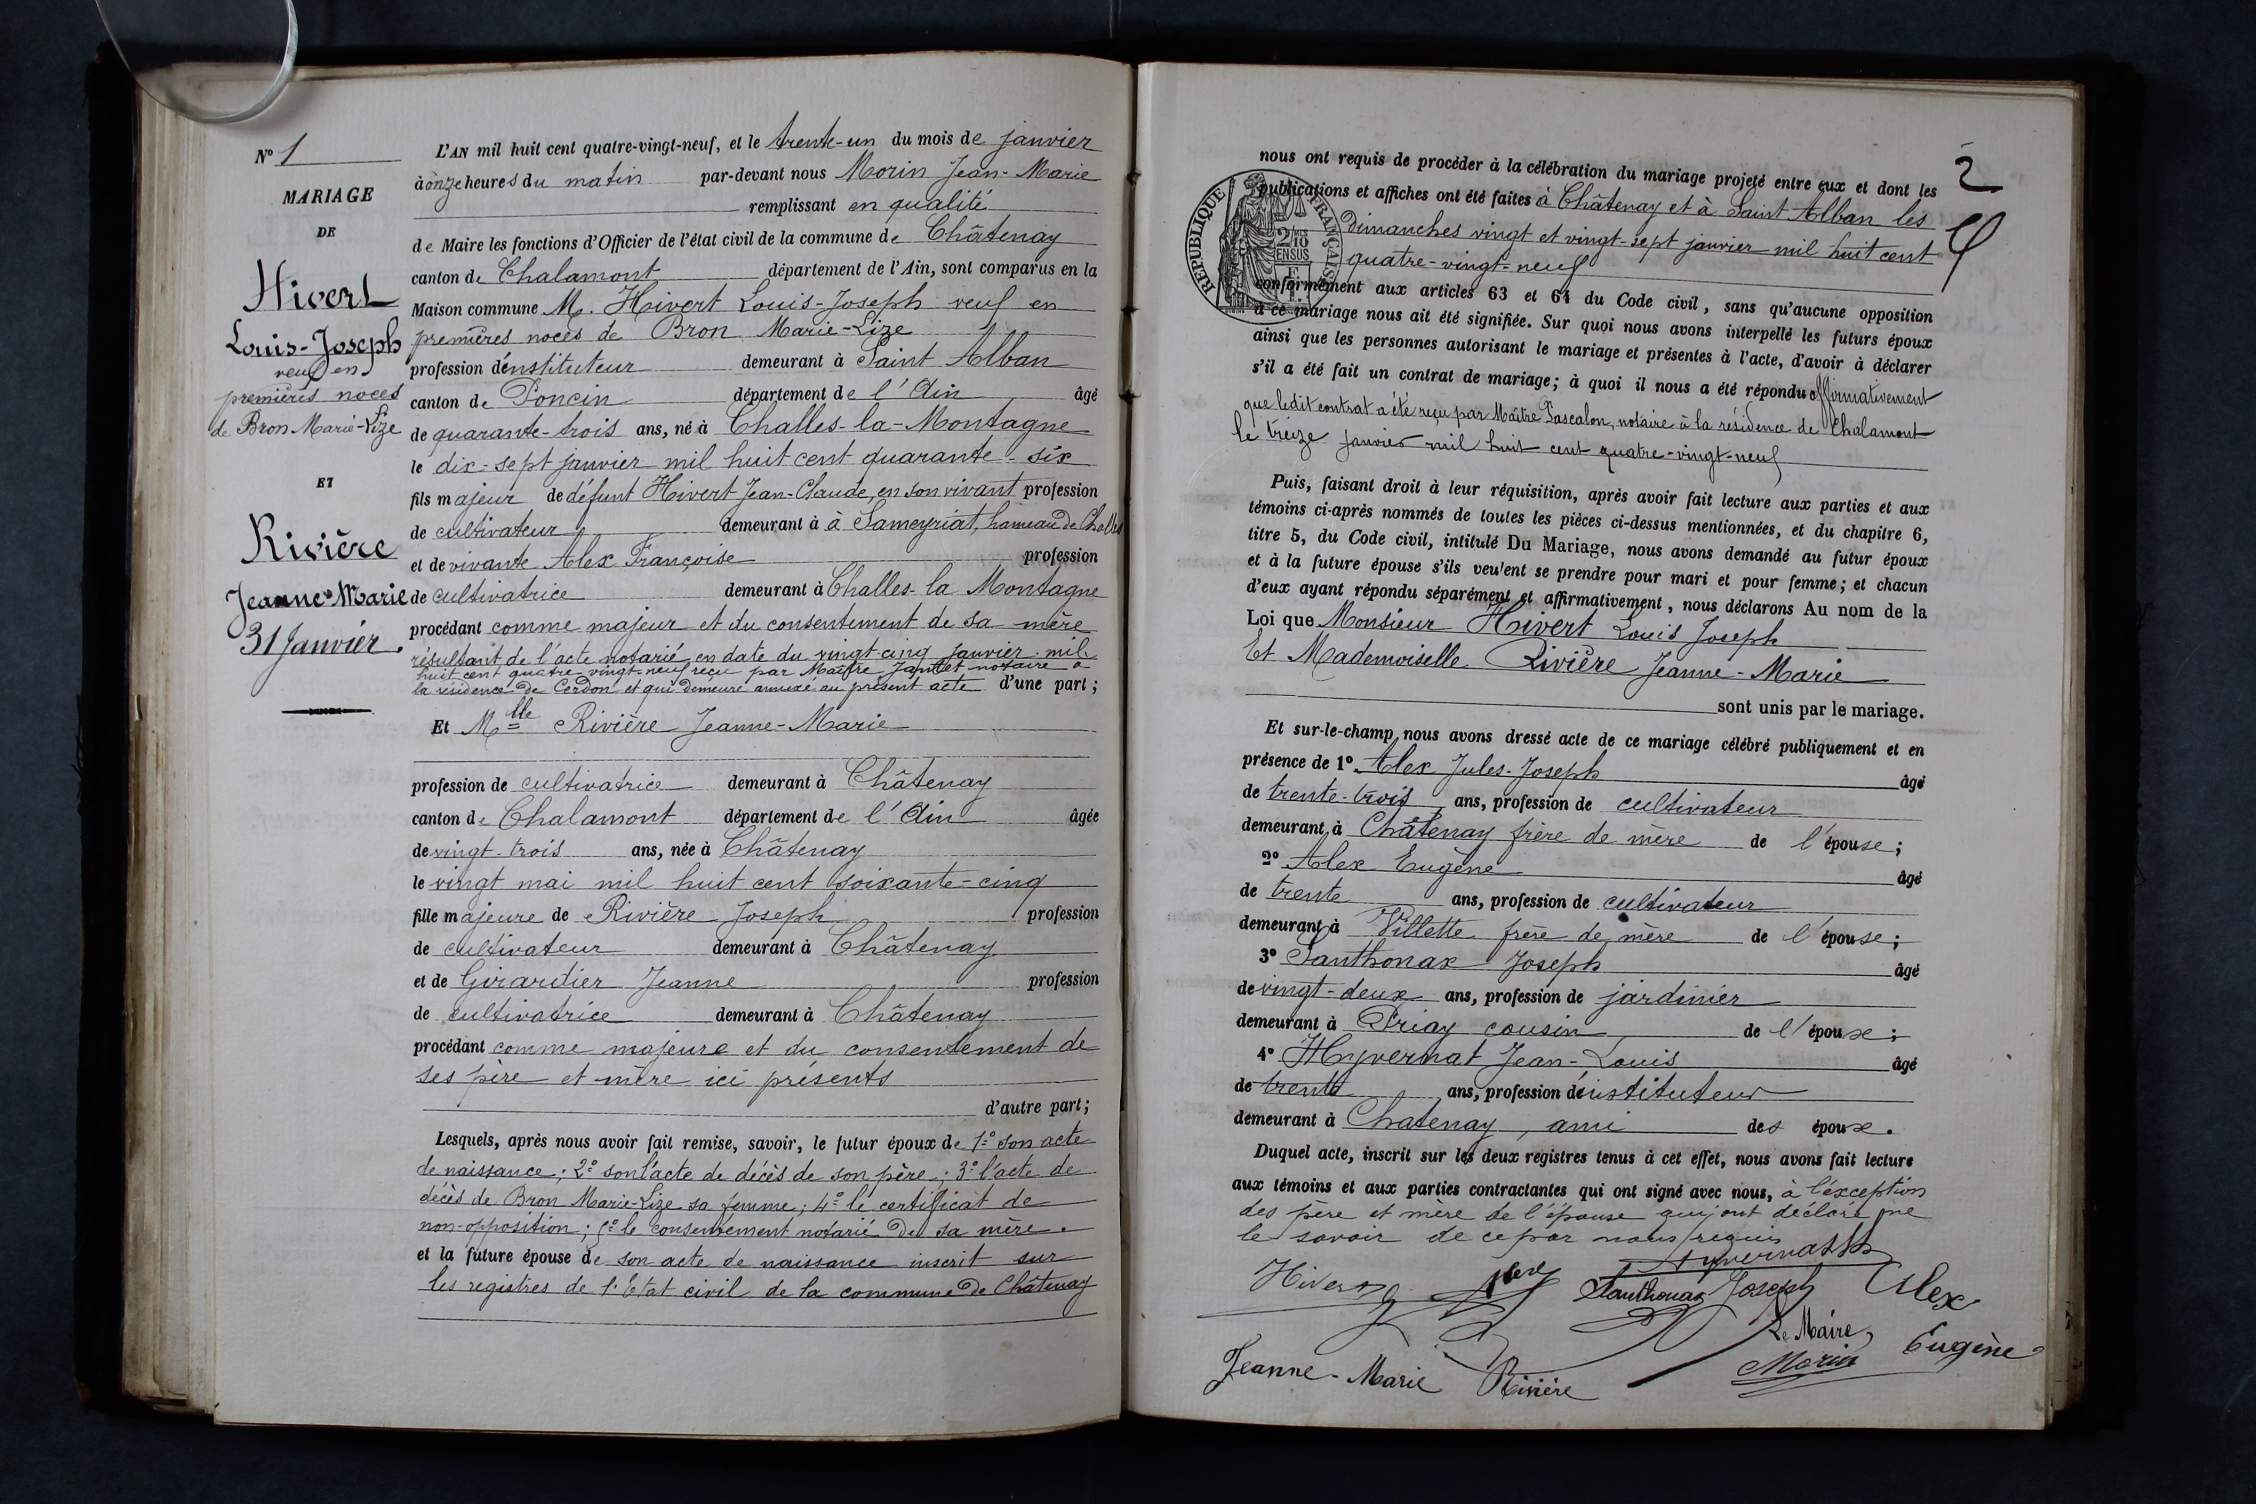 N° 1
MARIAGE
DE
Hivert
Louis-Joseph
veuf en
premières noces
de Bron Marie-Lize
ET
Rivière
Jeanne-Marie
31 Janvier.
L'AN mil huit cent quatre-vingt-neuf, et le trente-un du mois de janvier
à onze heures du matin par-devant nous Morin Jean-Marie
remplissant en qualité
de Maire les fonctions d'Officier de l'état civil de la commune de Châtenay
canton de Chalamont département de l'Ain, sont comparus en la
Maison commune M. Hivert Louis-Joseph veuf en
premières noces de Bron Marie-Lize
profession d'instituteur demeurant à Saint Alban
canton de Poncin département de l'Ain âgé
de quarante-trois ans, né à Challes-la-Montagne
le dix-sept janvier mil huit cent quarante-six
fils majeur de défunt Hivert Jean-Claude, en son vivant profession
de cultivateur demeurant à à Sameyriat, hameau de Challes
et de vivante Alex Françoise profession
de cultivatrice demeurant à Challes-la Montagne
procédant comme majeur et du consentement de sa mère
résultant de l'acte notarié en date du vingt-cinq janvier mil
huit cent quatre-vingt-neuf reçu par Maître Jantet notaire à
la résidence de Cerdon et qui demeure annexé au présent acte d'une part;
Et Mlle Rivière Jeanne-Marie
profession de cultivatrice demeurant à Châtenay
canton de Chalamont département de l'Ain âgée
de vingt-trois ans, née à Châtenay
le vingt mai mil huit cent soixante-cinq
fille majeure de Rivière Joseph profession
de cultivateur demeurant à Châtenay
et de Girardier Jeanne profession
de cultivatrice demeurant à Châtenay
procédant comme majeure et du consentement de
ses père et mère ici présents
d'autre part;
Lesquels, après nous avoir fait remise, savoir, le futur époux de 1° son acte
de naissance; 2° son l'acte de décès de son père; 3° l'acte de
décès de Bron Marie-Lize sa femme; 4° le certificat de
non-opposition; 5° le consentement notarié de sa mère.
et la future épouse de son acte de naissance inscrit sur
les registres de l'Etat civil de la commune de Châtenay
2
nous ont requis de procéder à la célébration du mariage projeté entre eux et dont les
publications et affiches ont été faites à Châtenay et à Saint-Alban les
dimanches vingt et vingt-sept janvier mil huit cent
quatre-vingt-neuf
REPUBLIQUE FRANÇAISE
2/10
EN SUS
conformément aux articles 63 et 64 du Code civil, sans qu'aucune opposition
à ce mariage nous ait été signifiée. Sur quoi nous avons interpellé les futurs époux
ainsi que les personnes autorisant le mariage et présentes à l'acte, d'avoir à déclarer
s'il a été fait un contrat de mariage; à quoi il nous a été répondu affirmativement
que ledit contrat a été reçu par Maître Pascalon, notaire à la résidence de Chalamont
le treize janvier mil huit cent quatre-vingt-neuf
Puis, faisant droit à leur réquisition, après avoir fait lecture aux parties et aux
témoins ci-après nommés de toutes les pièces ci-dessus mentionnées, et du chapitre 6,
titre 5, du Code civil, intitulé Du Mariage, nous avons demandé au futur époux
et à la future épouse s'ils veulent se prendre pour mari et pour femme; et chacun
d'eux ayant répondu séparément et affirmativement, nous déclarons Au nom de la
Loi que Monsieur Hivert Louis Joseph
Et Mademoiselle Rivière Jeanne-Marie
sont unis par le mariage.
Et sur-le-champ nous avons dressé acte de ce mariage célébré publiquement et en
présence de 1° Alex Jules-Joseph âgé
de trente-trois ans, profession de cultivateur
demeurant à Châtenay frère de mère de l'épouse;
2° Alex Eugène âgé
de trente ans, profession de cultivateur
demeurant à Villette frère de mère de l'épouse;
3° Santhonax Joseph âgé
de vingt-deux ans, profession de jardinier
demeurant à Priay cousin de l'époux;
4° Hyvernat Jean-Louis âgé
de trente ans, profession d'instituteur
demeurant à Chatenay, ami des époux.
Duquel acte, inscrit sur les deux registres tenus à cet effet, nous avons fait lecture
aux témoins et aux parties contractantes qui ont signé avec nous, à l'exception
des père et mère de l'épouse qui ont déclaré ne
le savoir de ce par nous requis
Hyvernat
Hivert Alex Santhonax Joseph Alex
Le Maire, Eugène
Jeanne-Marie Rivière Morin